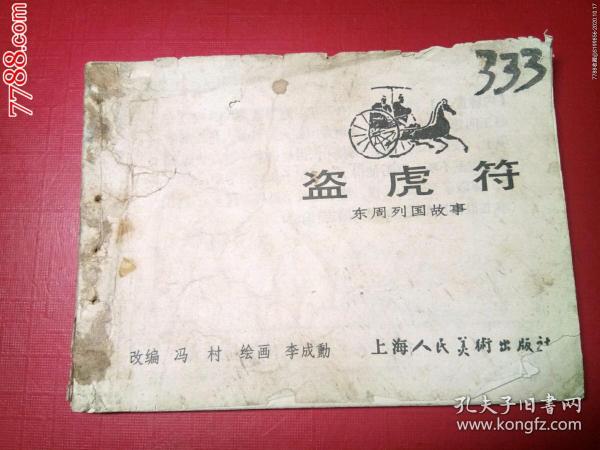 333
盗虎符
东周列国故事
改编 冯村 绘画 李成勳 上海人民美術出版社
7788.com
中国收藏热线
孔夫子旧书网
www.kongfz.com